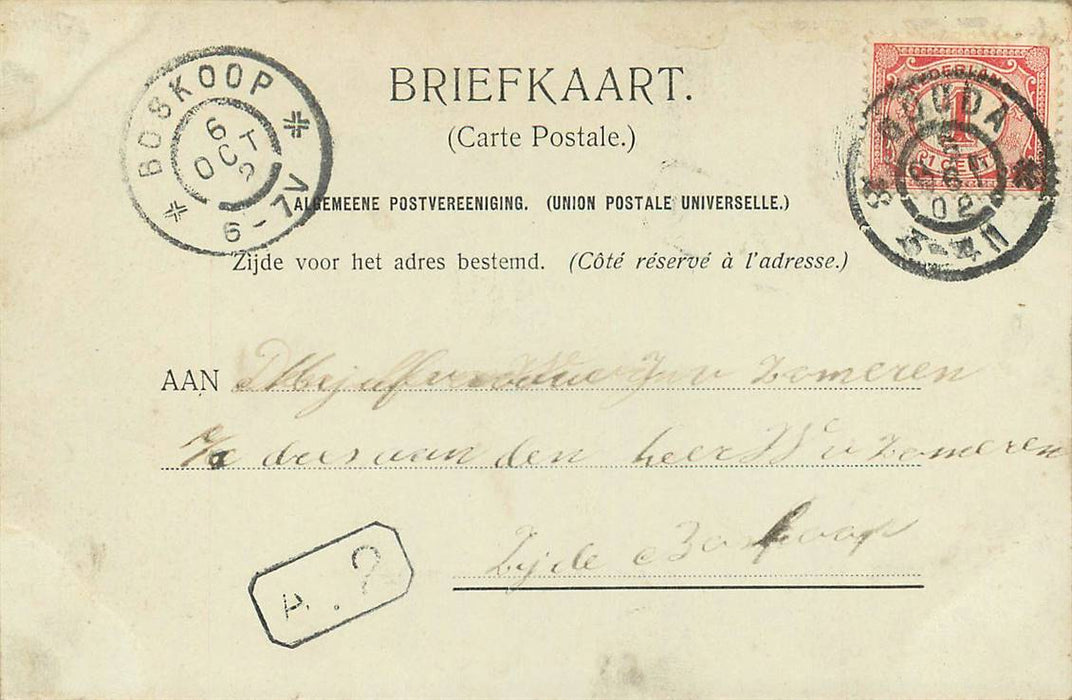 BRIEFKAART.
(Carte Postale.)
ALGEMEENE POSTVEREENIGING. (UNION POSTALE UNIVERSELLE.)
Zijde voor het adres bestemd. (Côté réservé à l'adresse.)
BOSKOOP
6 OCT 2
6-7V
NEDERLAND
1
CENT
GOUDA
02
AAN Mejuffrouw J v Zomeren
adres aan den heer W v Zomeren
Zijde Boskoop